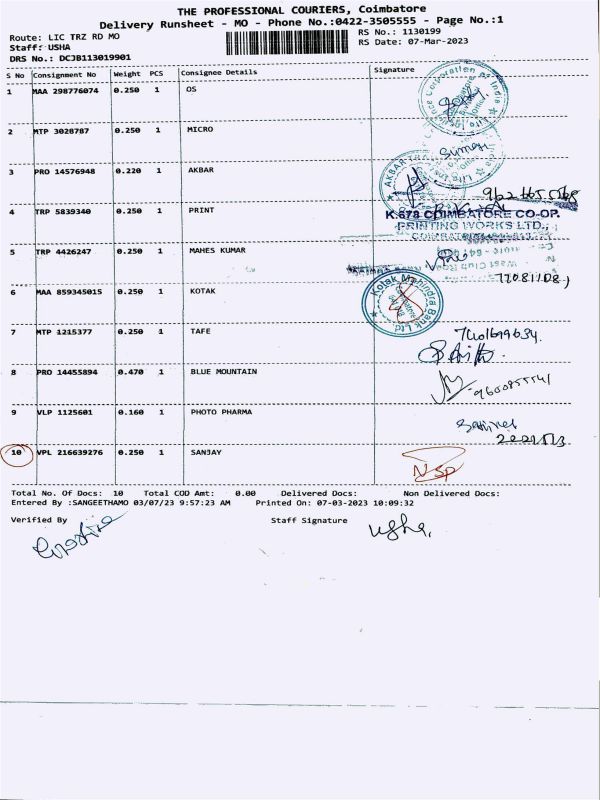 THE PROFESSIONAL COURIERS, Coimbatore
Delivery Runsheet - MO - Phone No.:0422-3505555 - Page No.:1
Route: LIC TRZ RD MO RS No.: 1130199
Staff: USHA RS Date: 07-Mar-2023
DRS No.: DCJB113019901
S No Consignment No Weight PCS Consignee Details Signature
1 MAA 298776074 0.250 1 OS
2 MTP 3028787 0.250 1 MICRO
3 PRO 14576948 0.220 1 AKBAR
4 TRP 5839340 0.250 1 PRINT
K.678 COIMBATORE CO-OP.
PRINTING WORKS LTD.,
5 TRP 4426247 0.250 1 MAHES KUMAR
6 MAA 859345015 0.250 1 KOTAK
Kotak Mahindra Bank Ltd
7 MTP 1215377 0.250 1 TAFE
8 PRO 14455894 0.470 1 BLUE MOUNTAIN
9 VLP 1125601 0.160 1 PHOTO PHARMA
10 VPL 216639276 0.250 1 SANJAY
NSP
Total No. Of Docs: 10 Total COD Amt: 0.00 Delivered Docs: Non Delivered Docs:
Entered By :SANGEETHAMO 03/07/23 9:57:23 AM Printed On: 07-03-2023 10:09:32
Verified By Staff Signature
usha.